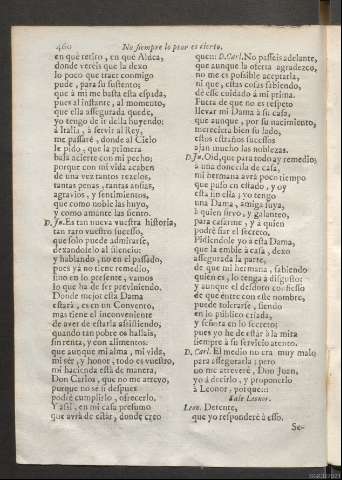 460 No siempre lo peor es cierto.
en què retiro, en què Aldea,
donde vereis que la dexo
lo poco que traer conmigo
pude, para su sustento;
que à mi me basta esta espada,
pues al instante, al momento,
que ella assegurada quede,
yo tengo de ir de ella huyendo:
à Italia, à servir al Rey,
me passaré, donde al Cielo
le pido, que la primera
bala acierte con mi pecho;
porque con mi vida acaben
de una vez tantos rezelos,
tantas penas, tantas ansias,
agravios, y sentimientos,
que como noble las huyo,
y como amante las siento.
D. Ju. Es tan nueva vuestra historia,
tan raro vuestro sucesso,
que solo puede admirarse,
dexandolo al silencio;
y hablando, no en el passado,
pues ya no tiene remedio,
sino en lo presente, vamos
lo que ha de ser previniendo.
Donde mejor esta Dama
estarà, es en un Convento,
mas tiene el inconveniente
de aver de estarla assistiendo,
quando tan pobre os hallais,
sin renta, y con alimentos:
que aunque mi alma, mi vida,
mi sèr, y honor, todo es vuestro,
mi hacienda està de manera,
Don Carlos, que no me atrevo,
porque no sè si despues
podrè cumplirlo, ofrecerlo.
Y assi, en mi casa presumo
que avrà de estàr, donde creo
que::: D. Carl. No passeis adelante,
que aunque la oferta agradezco,
no me es possible aceptarla,
ni que, estas cosas sabiendo,
dè esse cuidado à mi prima.
Fuera de que no es respeto
llevar mi Dama à su casa,
que aunque, por su nacimiento,
mereciera bien su lado,
estos estraños sucessos
ajan mucho las noblezas.
D. Ju. Oid, que para todo ay remedio;
à una doncella de casa,
mi hermana avrà poco tiempo
que puso en estado, y oy
està sin ella; yo tengo
una Dama, amiga suya,
à quien sirvo, y galantèo,
para casarme, y à quien
podrè fiar el secreto.
Pidiendole yo à esta Dama,
que la embie à casa, dexo
assegurada la parte,
de que mi hermana, sabiendo
quien es, lo tenga à disgusto;
y aunque el desdoro confiesso
de que entre con este nombre,
puede tolerarse, siendo
en lo público criada,
y señora en lo secreto;
pues yo he de estàr à la mira
siempre à su servicio atento.
D. Carl. El medio no era muy malo
para assegurarla; pero
no me atreverè, Don Juan,
yo à decirlo, y proponerlo
à Leonor, porque:::
Sale Leonor.
Leon. Detente,
que yo responderè à esso.
Se-